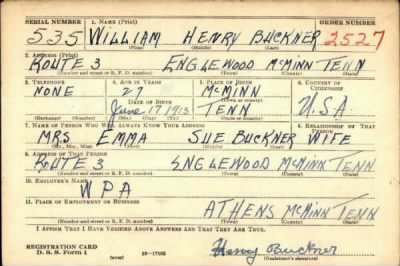 SERIAL NUMBER 1. NAME (Print) ORDER NUMBER
535 WILLIAM HENRY BUCKNER 2527
(First) (Middle) (Last)
2. ADDRESS (Print)
ROUTE 3 ENGLEWOOD McMINN TENN
(Number and street or R. F. D. number) (Town) (County) (State)
3. TELEPHONE 4. AGE IN YEARS 5. PLACE OF BIRTH 6. COUNTRY OF CITIZENSHIP
NONE 27 McMINN
DATE OF BIRTH (Town or county)
June 17 1913 TENN U.S.A.
(Mo.) (Day) (Yr.) (State or country)
7. NAME OF PERSON WHO WILL ALWAYS KNOW YOUR ADDRESS 8. RELATIONSHIP OF THAT PERSON
MRS EMMA SUE BUCKNER WIFE
(Mr., Mrs., Miss) (First) (Middle) (Last)
9. ADDRESS OF THAT PERSON
ROUTE 3 ENGLEWOOD McMINN TENN
(Number and street or R. F. D. number) (Town) (County) (State)
10. EMPLOYER'S NAME
WPA
11. PLACE OF EMPLOYMENT OR BUSINESS
ATHENS McMINN TENN
(Number and street or R. F. D. number) (Town) (County) (State)
I AFFIRM THAT I HAVE VERIFIED ABOVE ANSWERS AND THAT THEY ARE TRUE.
REGISTRATION CARD
D. S. S. Form 1 (over) Henry Buckner
(Registrant's signature)